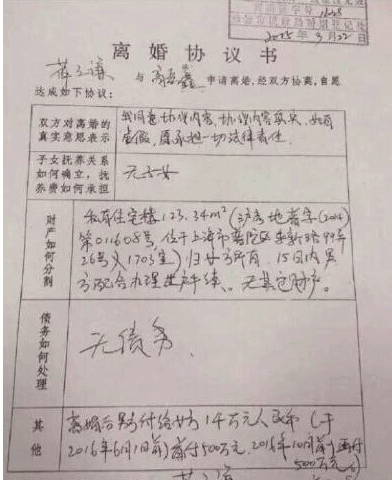 2015年9月22日
离婚协议书
与 申请离婚,经双方协商,自愿
达成如下协议:
双方对离婚的
真实意思表示
我同意协议内容,协议内容真实,如有
虚假,愿承担一切法律责任.
子女抚养关系
如何确立,抚
养费如何承担
无子女
财产如何分割
私有住宅楼123.34m²(沪房地普字(2014)
第011608号,位于上海市普陀区 路99弄
26号 1703室)归女方所有,15日内男
方配合办理过户手续、无其它财产。
债务如何处理
无债务.
其他
离婚后男付给女方1千万元人民币(于
2016年6月1日前首付500万元,2016年10月前再付
500万元